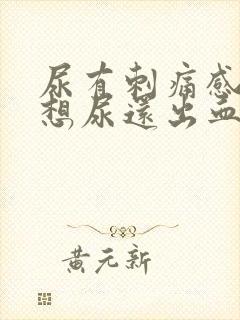 尿有刺痛感
想尿還出血
黄元新